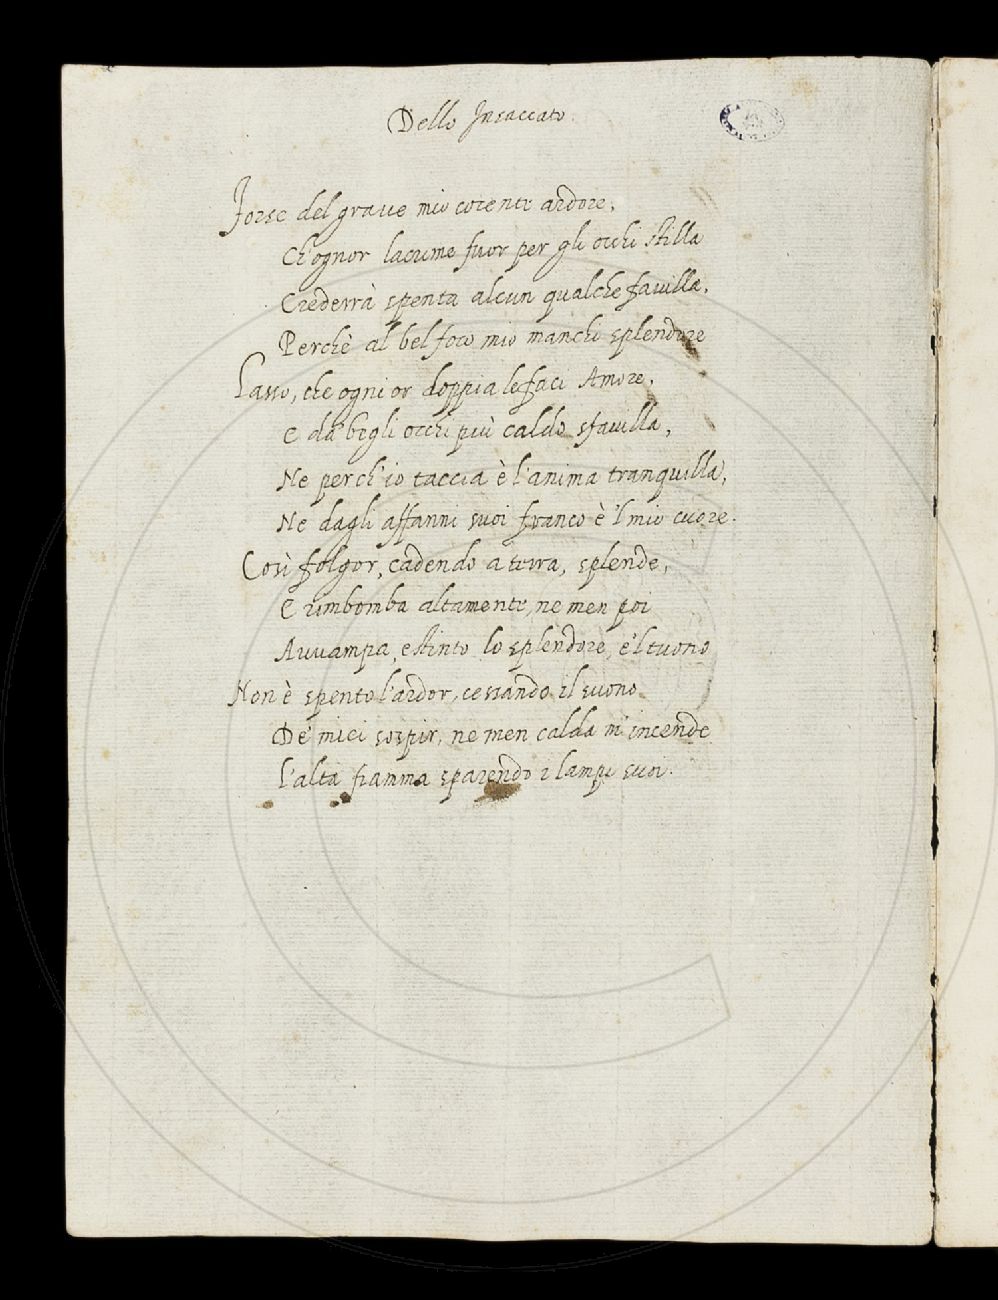 Dello Insaccato
Forse del graue mio cocente ardore,
Ch'ognor lacrime fuor per gli occhi stilla
Crederrà spenta alcun qualche fauilla,
Perchè al bel foco mio manchi splendore
Lasso, che ogni or doppia le faci Amore,
E da begli occhi più caldo sfauilla,
Ne perch'io taccia è l'anima tranquilla,
Ne dagli affanni suoi franco è 'l mio cuore.
Così folgor, cadendo a terra, splende,
E rimbomba altamente, ne men poi
Auuampa, estinto lo splendore, e 'l tuono
Non è spento l'ardor, cessando il suono
De' miei sospir, ne men calda m'incende
L'alta fiamma sparendo i lampi suoi.